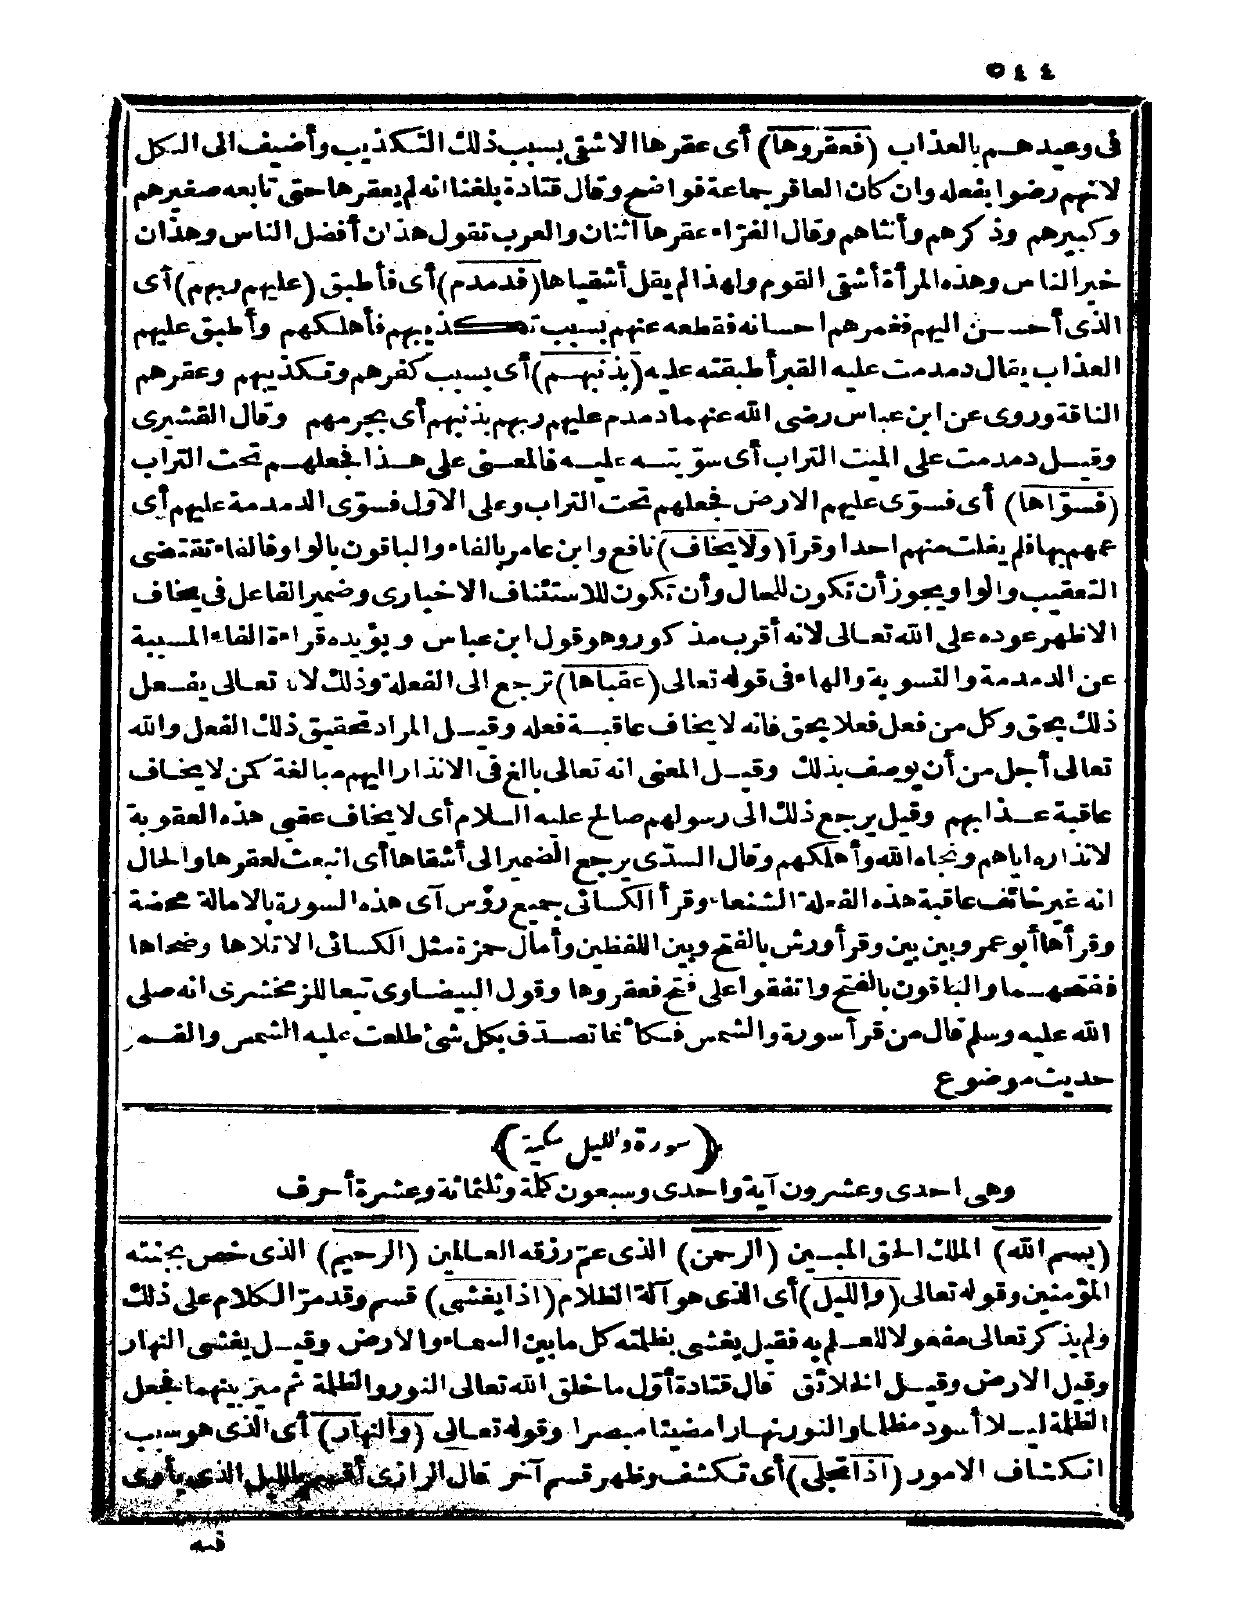 ٥٤٤
فى وعيدهم بالعذاب (فعقروها) أى عقرها الاشقى بسبب ذلك التكذيب وأضيف الى الكل
لانهم رضوا بفعله وان كان العاقر جماعة فواضح وقال قتادة بلغنا انه لم يعقرها حتى تابعه صغيرهم
وكبيرهم وذكرهم وأنثاهم وقال الفرّاء عقرها اثنان والعرب تقول هذان أفضل الناس وهذان
خير الناس وهذه المرأة أشقى القوم ولهذا لم يقل أشقياها (فدمدم) أى فأطبق (عليهم ربهم) أى
الذى أحسن اليهم فغمرهم احسانه فقطعه عنهم بسبب تكذيبهم فأهلكهم وأطبق عليهم
العذاب يقال دمدمت عليه القبر أطبقته عليه (بذنبهم) أى بسبب كفرهم وتكذيبهم وعقرهم
الناقة وروى عن ابن عباس رضى الله عنهما دمدم عليهم ربهم بذنبهم أى بجرمهم وقال القشيرى
وقيل دمدمت على الميت التراب أى سوّيته عليه فالمعنى على هذا فجعلهم تحت التراب
(فسوّاها) أى فسوّى عليهم الارض فجعلهم تحت التراب وعلى الاوّل فسوّى الدمدمة عليهم أى
عمهم بها فلم يفلت منهم احدا وقرأ (ولا يخاف) نافع وابن عامر بالفاء والباقون بالواو فالفاء تقتضى
التعقيب والواو يجوز أن تكون للحال وأن تكون للاستئناف الاخبارى وضمير الفاعل فى يخاف
الاظهر عوده على الله تعالى لانه أقرب مذكور وهو قول ابن عباس ويؤيده قراءة الفاء المسببة
عن الدمدمة والتسوية والهاء فى قوله تعالى (عقباها) ترجع الى الفعلة وذلك لانه تعالى يفعل
ذلك بحق وكل من فعل فعلا بحق فانه لا يخاف عاقبة فعله وقيل المراد تحقيق ذلك الفعل والله
تعالى أجل من أن يوصف بذلك وقيل المعنى انه تعالى بالغ فى الانذار اليهم مبالغة كمن لا يخاف
عاقبة عذابهم وقيل يرجع ذلك الى رسولهم صالح عليه السلام أى لا يخاف عقبى هذه العقوبة
لانذاره اياهم ونجاه الله وأهلكهم وقال السدّى يرجع الضمير الى أشقاها أى انبعث لعقرها والحال
انه غير خائف عاقبة هذه الفعلة الشنعاء وقرأ الكسائى جميع رؤس آى هذه السورة بالامالة محضة
وقرأها أبو عمرو بين بين وقرأ ورش بالفتح وبين اللفظين وأمال حمزة مثل الكسائى الا تلاها وضحاها
ففتحهما والباقون بالفتح واتفقوا على فتح فعقروها وقول البيضاوى تبعا للزمخشرى انه صلى
الله عليه وسلم قال من قرأ سورة والشمس فكأنما تصدّق بكل شئ طلعت عليه الشمس والقمر
حديث موضوع
(سورة والليل مكية)
وهى احدى وعشرون آية واحدى وسبعون كلمة وثلثمائة وعشرة أحرف
(بسم الله) الملك الحق المبين (الرحمن) الذى عمّ رزقه العالمين (الرحيم) الذى خص بجنته
المؤمنين وقوله تعالى (والليل) أى الذى هو آلة الظلام (اذا يغشى) قسم وقد مرّ الكلام على ذلك
ولم يذكر تعالى مفعولا للعلم به فقيل يغشى بظلمته كل ما بين السماء والارض وقيل يغشى النهار
وقيل الارض وقيل الخلائق قال قتادة أوّل ما خلق الله تعالى النور والظلمة ثم ميز بينهما فجعل
الظلمة ليلا أسود مظلما والنور نهارا مضيئا مبصرا وقوله تعالى (والنهار) أى الذى هو سبب
انكشاف الامور (اذا تجلى) أى تكشف وظهر قسم آخر قال الرازى أقسم بالليل الذى يأوى
فيه